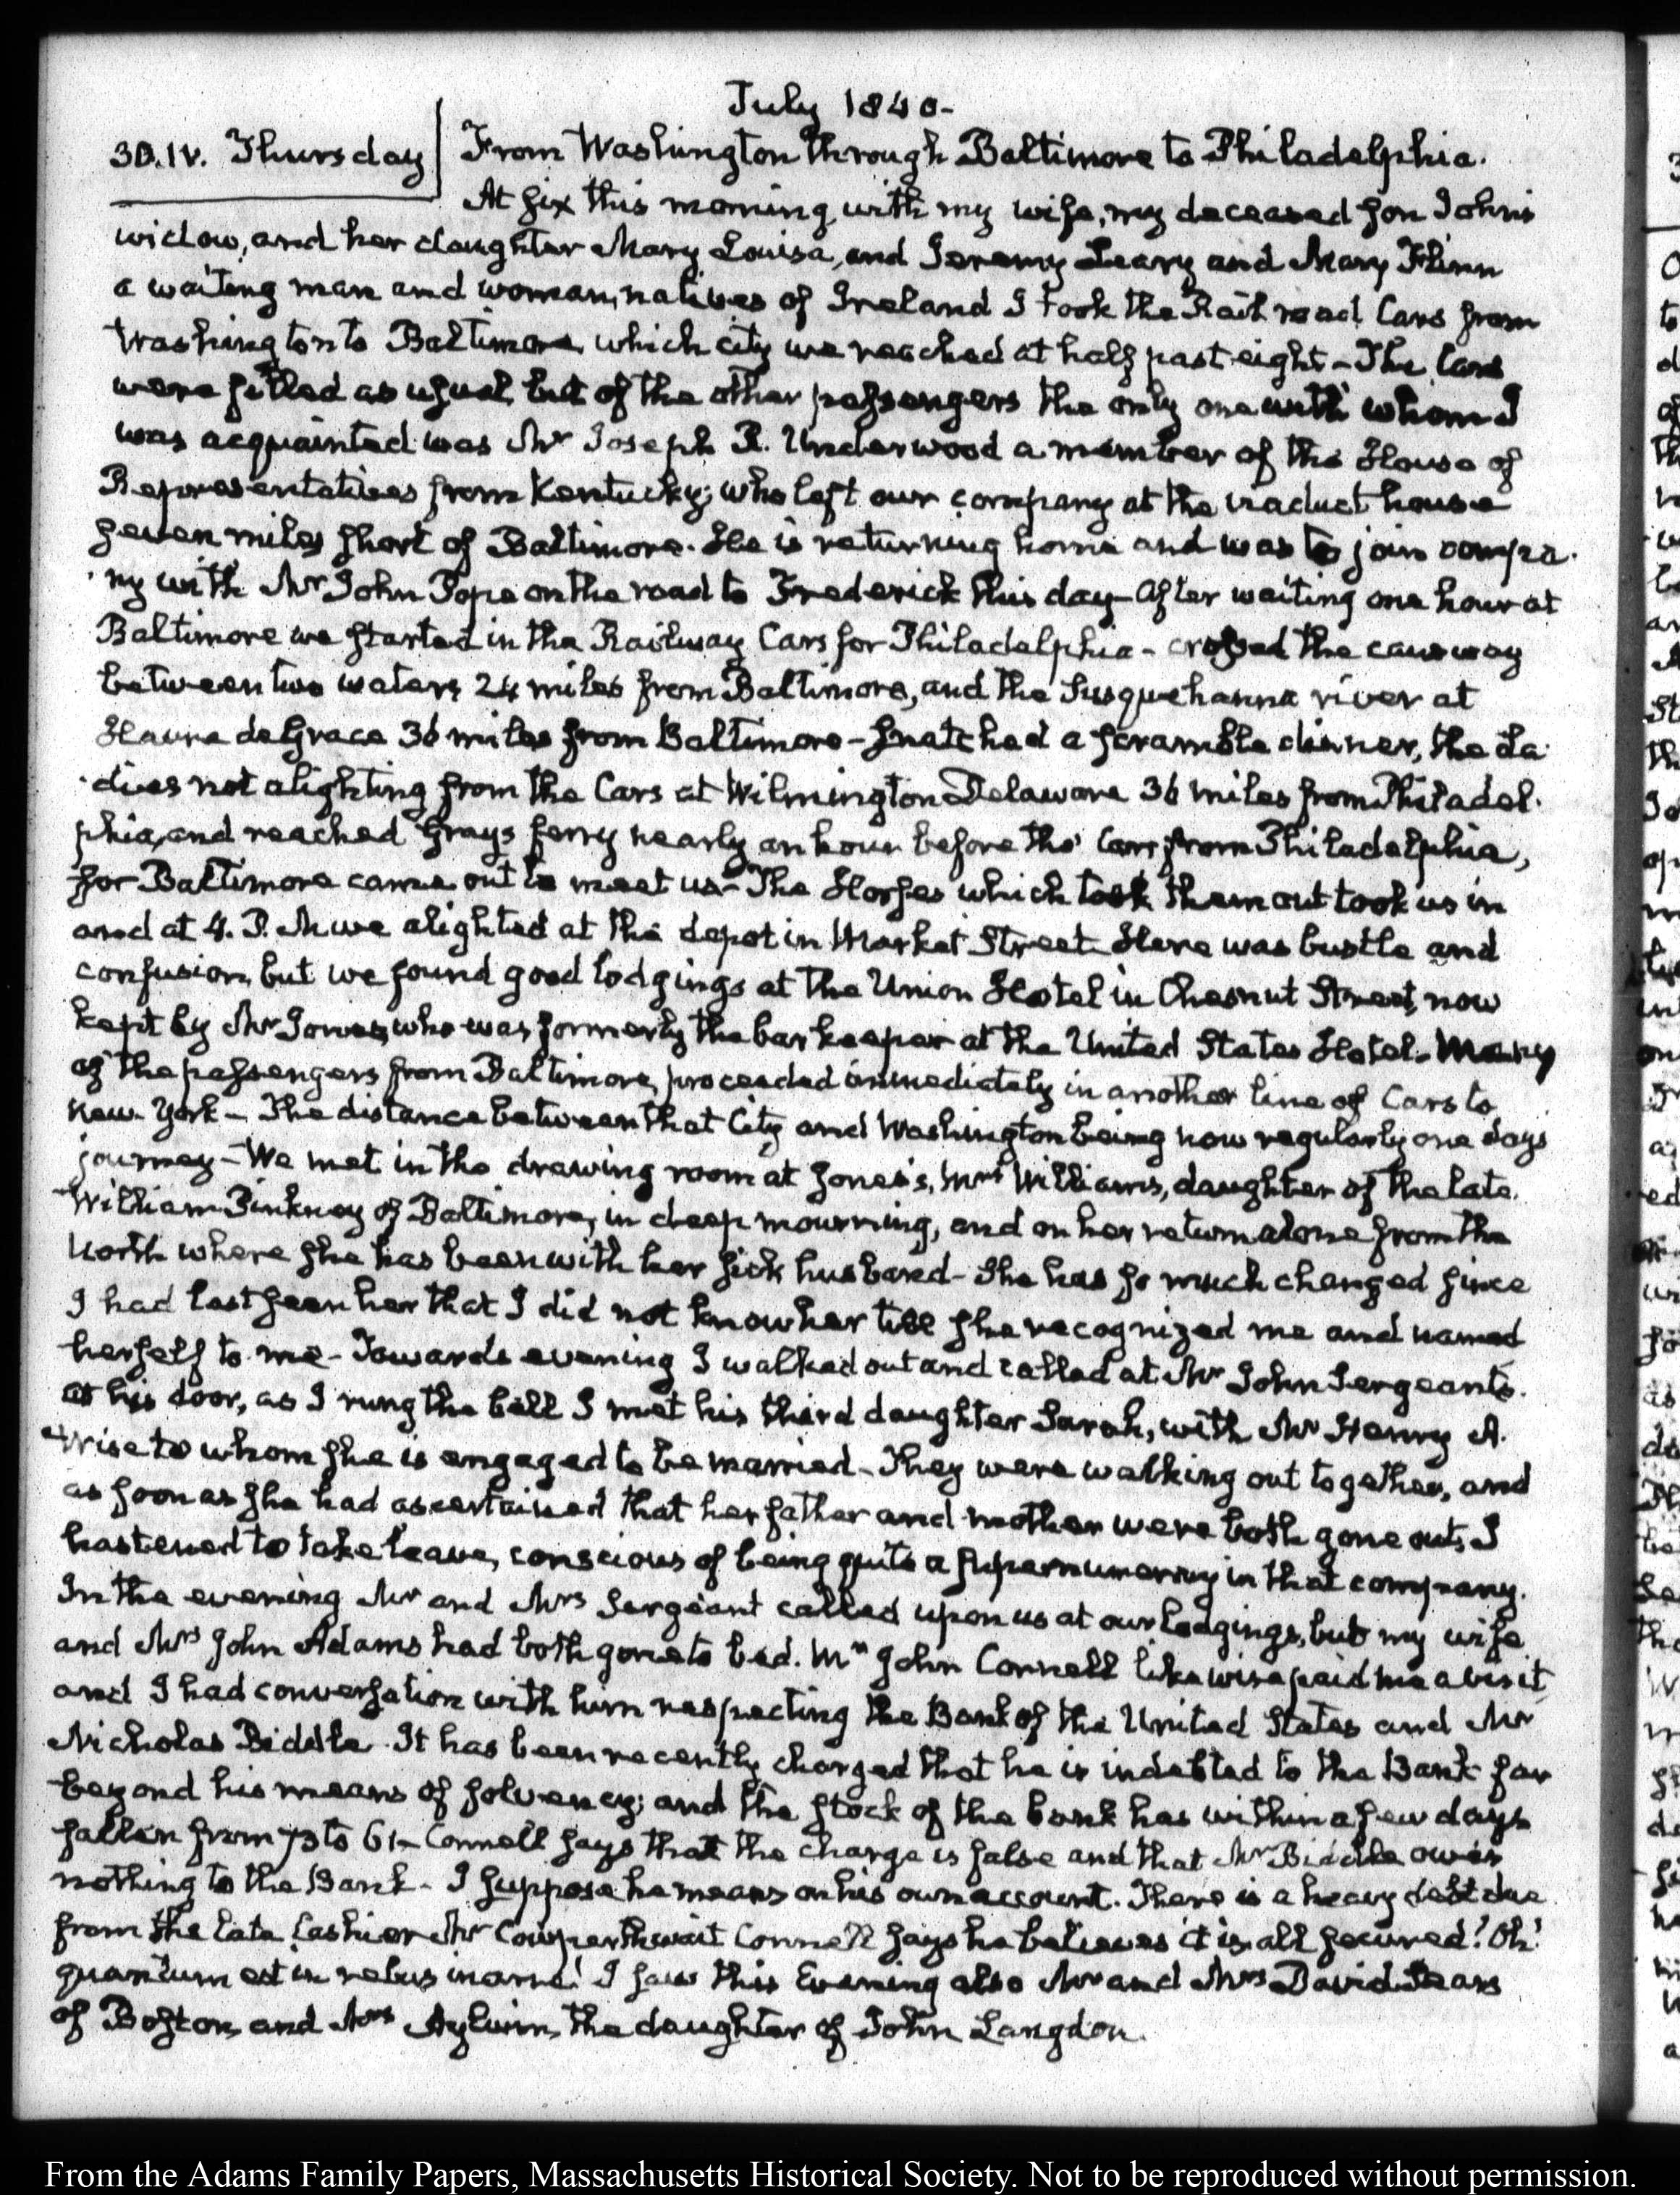 July 1840-
30. IV. Thursday
From Washington through Baltimore to Philadelphia.
At six this morning, with my wife, my deceased son John's
widow, and her daughter Mary Louisa, and Jeremy Leary and Mary Flinn
a waiting man and woman, natives of Ireland I took the Rail road Cars from
Washington to Baltimore, which city we reached at half past eight - The Cars
were filled as usual, but of the other passengers the only one with whom I
was acquainted was Mr Joseph R. Underwood a member of the House of
Representatives from Kentucky; who left our company at the viaduct house
seven miles short of Baltimore. He is returning home and was to join compa-
-ny with Mr John Pope on the road to Frederick this day - After waiting one hour at
Baltimore we started in the Railway Cars for Philadelphia - crossed the causeway
between two waters 24 miles from Baltimore, and the Susquehanna river at
Havre de Grace 36 miles from Baltimore - snatched a scramble dinner, the la-
-dies not alighting from the Cars at Wilmington Delaware 36 miles from Philadel-
phia, and reached Grays ferry nearly an hour before the Cars from Philadelphia,
for Baltimore came out to meet us - The Horses which took them out took us in
and at 4. P. M we alighted at the depot in Market Street - Here was bustle and
confusion, but we found good lodgings at the Union Hotel in Chesnut Street, now
kept by Mr Jones, who was formerly the bar keeper at the United States Hotel - Many
of the passengers from Baltimore, proceeded immediately in another line of Cars to
New-York - The distance between that City and Washington being now regularly one days
journey - We met in the drawing room at Jones's, Mrs Williams, daughter of the late
William Pinkney of Baltimore, in deep mourning, and on her return alone from the
North where she has been with her sick husband - She has so much changed since
I had last seen her that I did not know her till she recognized me and named
herself to me - Towards evening I walked out and called at Mr John Sergeants.
at his door, as I rung the bell I met his third daughter Sarah, with Mr Henry A.
Wise to whom she is engaged to be married - They were walking out together, and
as soon as she had ascertained that her father and mother were both gone out, I
hastened to take leave, conscious of being quite a supernumerary in that company.
In the evening Mr and Mrs Sergeant called upon us at our lodgings, but my wife
and Mrs John Adams had both gone to bed. Mr John Connell likewise paid me a visit
and I had conversation with him respecting the Bank of the United States and Mr
Nicholas Biddle. It has been recently charged that he is indebted to the Bank far
beyond his means of solvency; and the stock of the bank has within a few days
fallen from 73 to 61 - Connell says that the charge is false and that Mr Biddle owes
nothing to the Bank - I suppose he means on his own account. There is a heavy debt due
from the late Cashier Mr Cowperthwait Connell says he believes it is all secured! Oh!
quantum est in rebus inane! I saw this Evening also Mr and Mrs David Sears
of Boston, and Mrs Aylwin, the daughter of John Langdon.
From the Adams Family Papers, Massachusetts Historical Society. Not to be reproduced without permission.